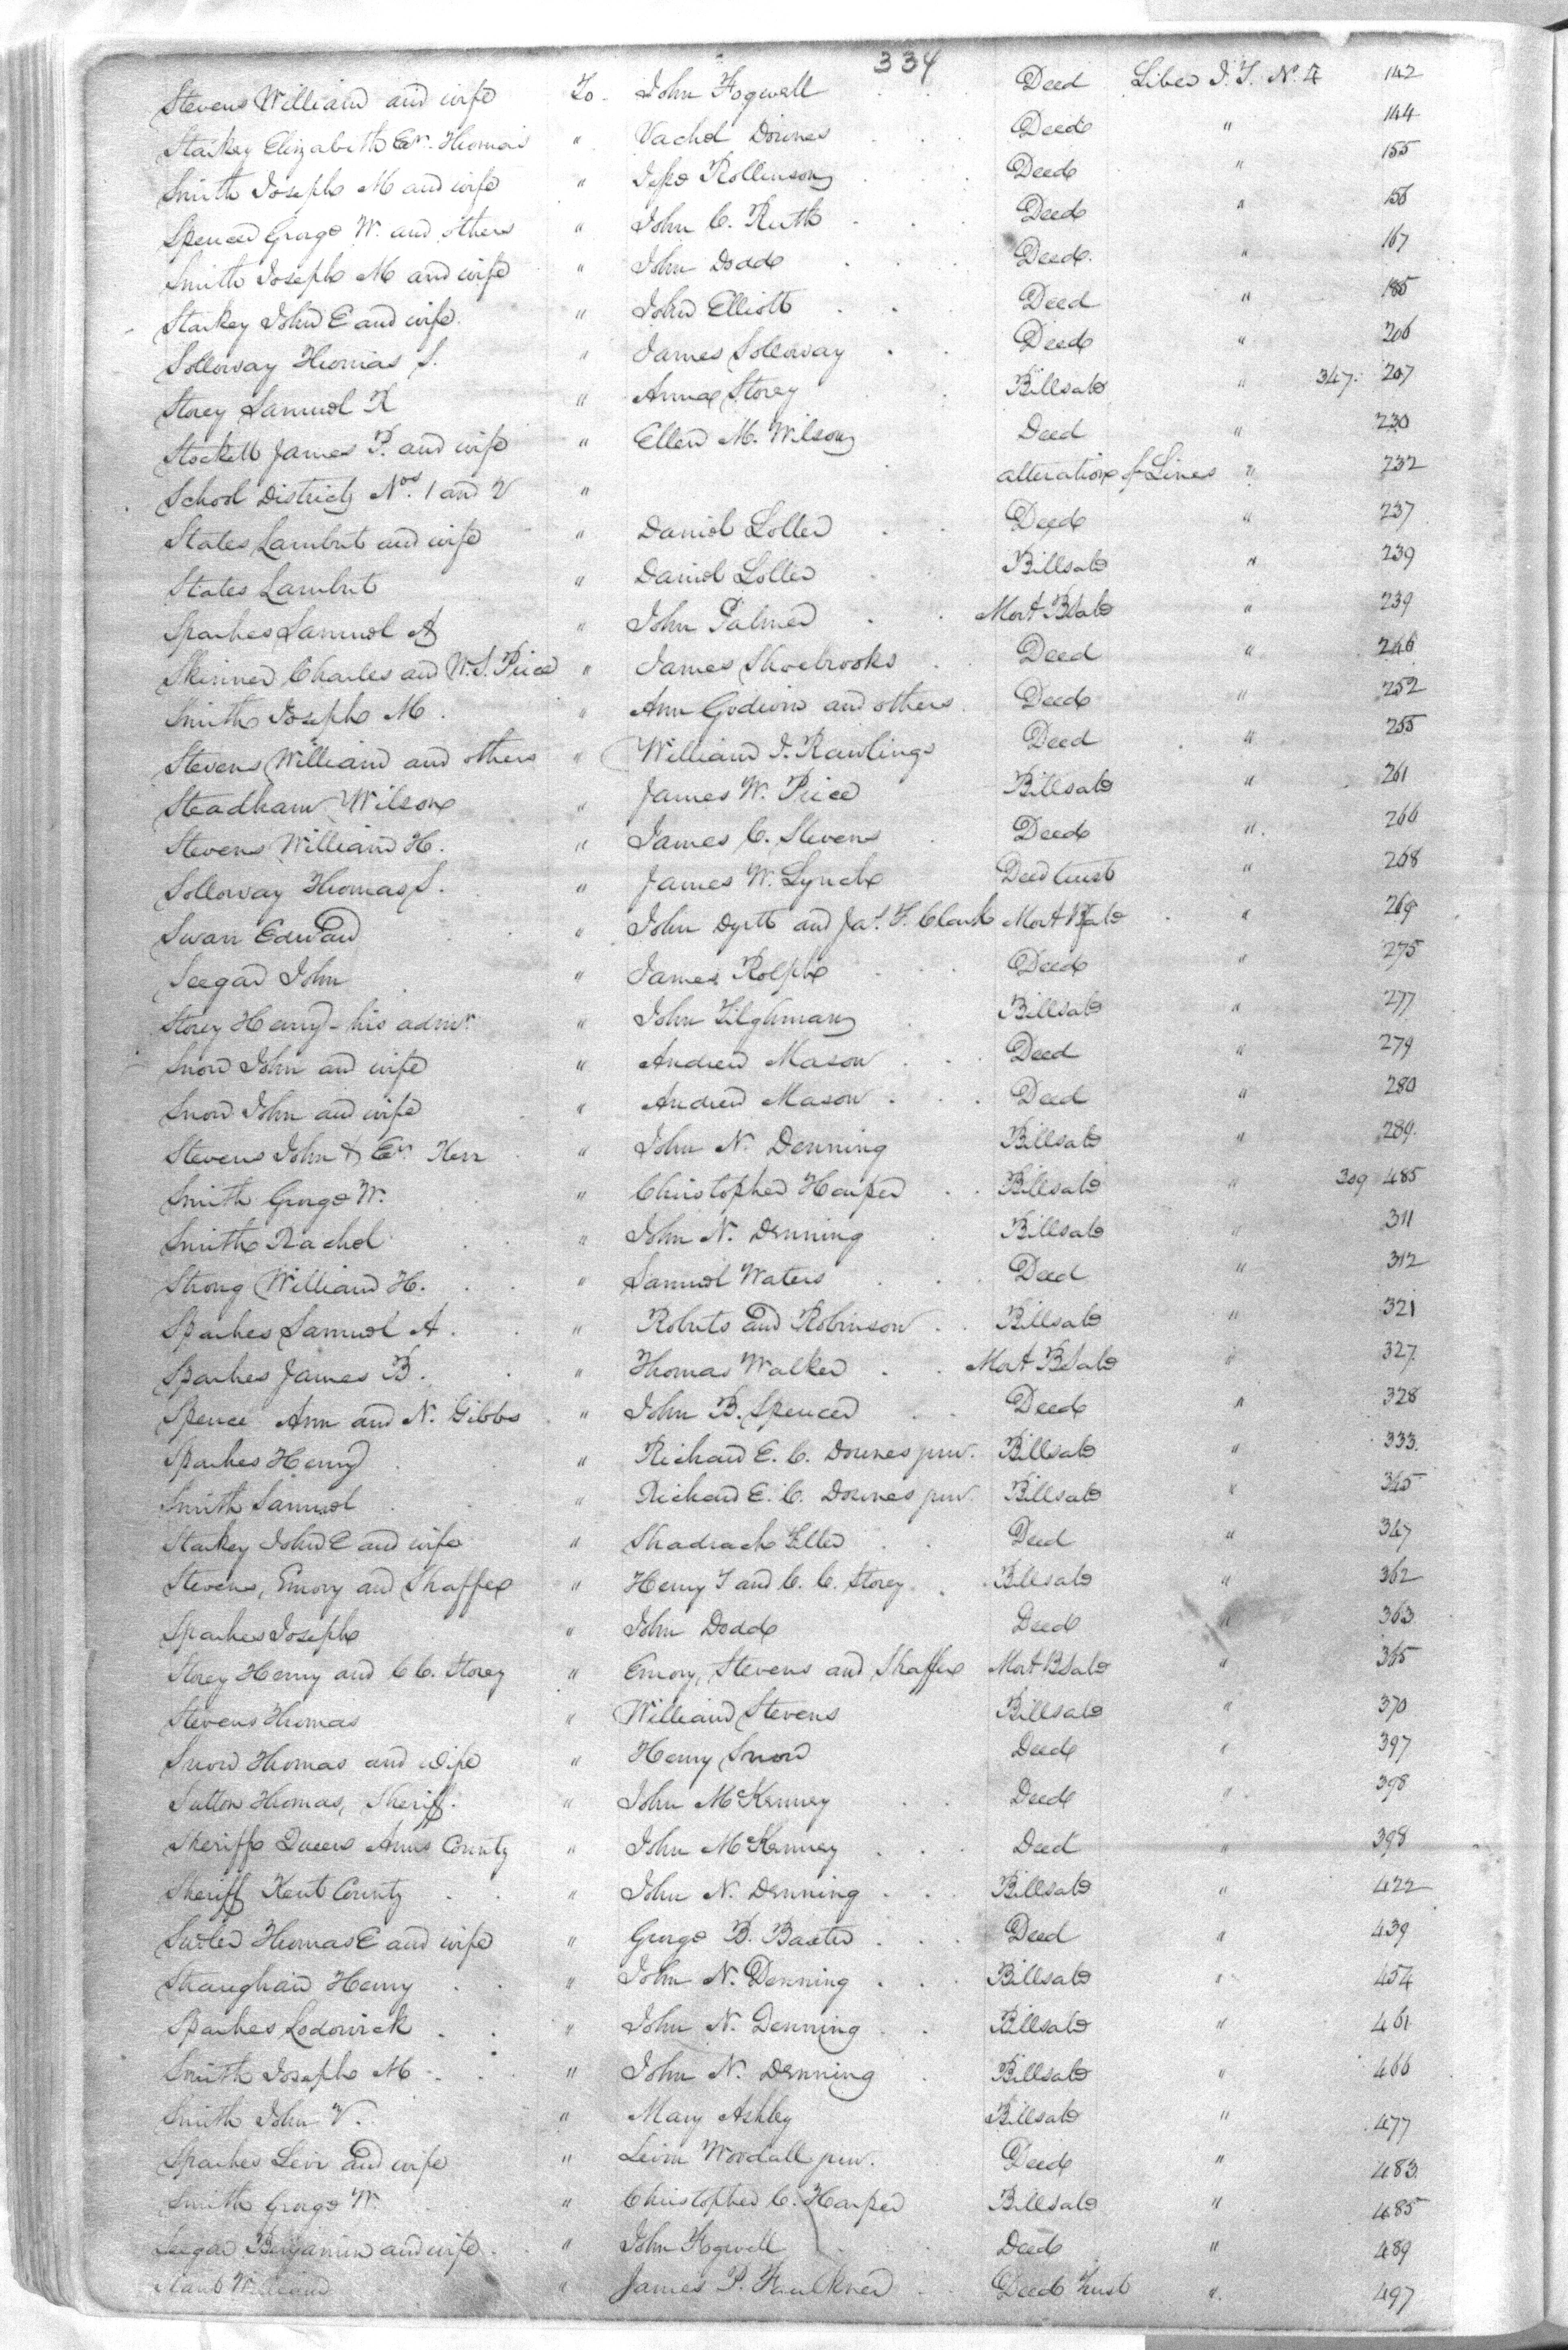 334
Stevens William and wife To. John Fogwell Deed Liber J. T. No. 4 142
Starkey Elizabeth Exr. Thomas " Vachel Downes Deed " 144
Smith Joseph M and wife " Jesse Rollinson Deed " 155
Spencer George W. and others " John C. Ruth Deed " 156
Smith Joseph M and wife " John Dodd Deed " 167
Starkey John E and wife " John Elliott Deed " 185
Solloway Thomas S. " James Solloway Deed " 206
Storey Samuel K " Anna Storey Billsale " 347. 207
Stockett James P. and wife " Ellen M. Wilson Deed " 230
School Districts Nos. 1 and 2 " alteration of Lines " 232
States Lambert and wife " Daniel Loller Deed " 237
States Lambert " Daniel Loller Billsale " 239
Sparkes Samuel A " John Palmer Mort BSale " 239
Skinner Charles and W. S. Price " James Shoebrooks Deed " 246
Smith Joseph M. " Ann Godwin and others Deed " 252
Stevens William and others " William J. Rawlings Deed " 255
Steadham Wilson " James W. Price Billsale " 261
Stevens William H. " James C. Stevens Deed " 266
Solloway Thomas S. " James W. Lynch Deed trust " 268
Swan Edward " John Dyett and Jas. T. Clark Mort BSale " 269
Seegar John " James Rolph Deed " 275
Storey Henry - his admr. " John Tilghman Billsale " 277
Snow John and wife " Andrew Mason Deed " 279
Snow John and wife " Andrew Mason Deed " 280
Stevens John & Exr. Kerr " John N. Denning Billsale " 289.
Smith George W. " Christopher Harper Billsale " 309 485
Smith Rachel " John N. Denning Billsale " 311
Strong William H. " Samuel Waters Deed " 312
Sparkes Samuel A. " Roberts and Robinson Billsale " 321
Sparkes James B. " Thomas Walker Mort BSale " 327
Spence Ann and N. Gibbs " John B. Spencer Deed " 328
Sparkes Henry " Richard E. C. Downes junr. Billsale " 333.
Smith Samuel " Richard E. C. Downes junr Billsale " 345
Starkey John E and wife " Shadrach Eller Deed " 347
Stevens, Emory and Shaffer " Henry T and C. C. Storey Billsale " 362
Sparkes Joseph " John Dodd Deed " 363
Storey Henry and C C. Storey " Emory, Stevens and Shaffer Mort BSale " 365
Stevens Thomas " William Stevens Billsale " 370
Snow Thomas and wife " Henry Snow Deed " 397
Sutton Thomas, Sheriff. " John McKenney Deed " 398
Sheriff Queens Anns County " John McKenney Deed " 398
Sheriff Kent County " John N. Denning Billsale " 422
Thomas E and wife " George B. Baxter Deed " 439
Straughan Henry " John N. Denning Billsale " 454
Sparkes Lodowick " John N. Denning Billsale " 461
Smith Joseph M " John N. Denning Billsale " 466
Smith John V. " Mary Ashley Billsale " 477
Sparkes Levi and wife " Levin Woodall junr. Deed " 483.
Smith George W. " Christopher C. Harper Billsale " 485
Seegar Benjamin and wife " John Fogwell Deed " 489
William " James P. Faulkner Deed Trust " 497